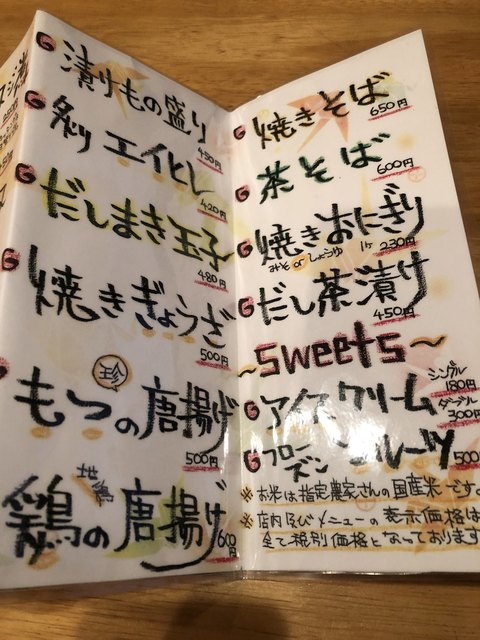 漬けもの盛り
450円
炙りエイヒレ
420円
だしまき玉子
480円
焼きぎょうざ
500円
もつの唐揚げ
500円
鶏の唐揚げ
600円
焼きそば
650円
茶そば
600円
焼きおにぎり
みそ or しょうゆ 1ヶ 230円
だし茶漬け
450円
~sweets~
アイスクリーム
シングル
180円
ダブル
300円
フローズンフルーツ
500
※お米は指定農家さんの国産米です。
※店内及びメニューの表示価格は
全て税別価格となっております